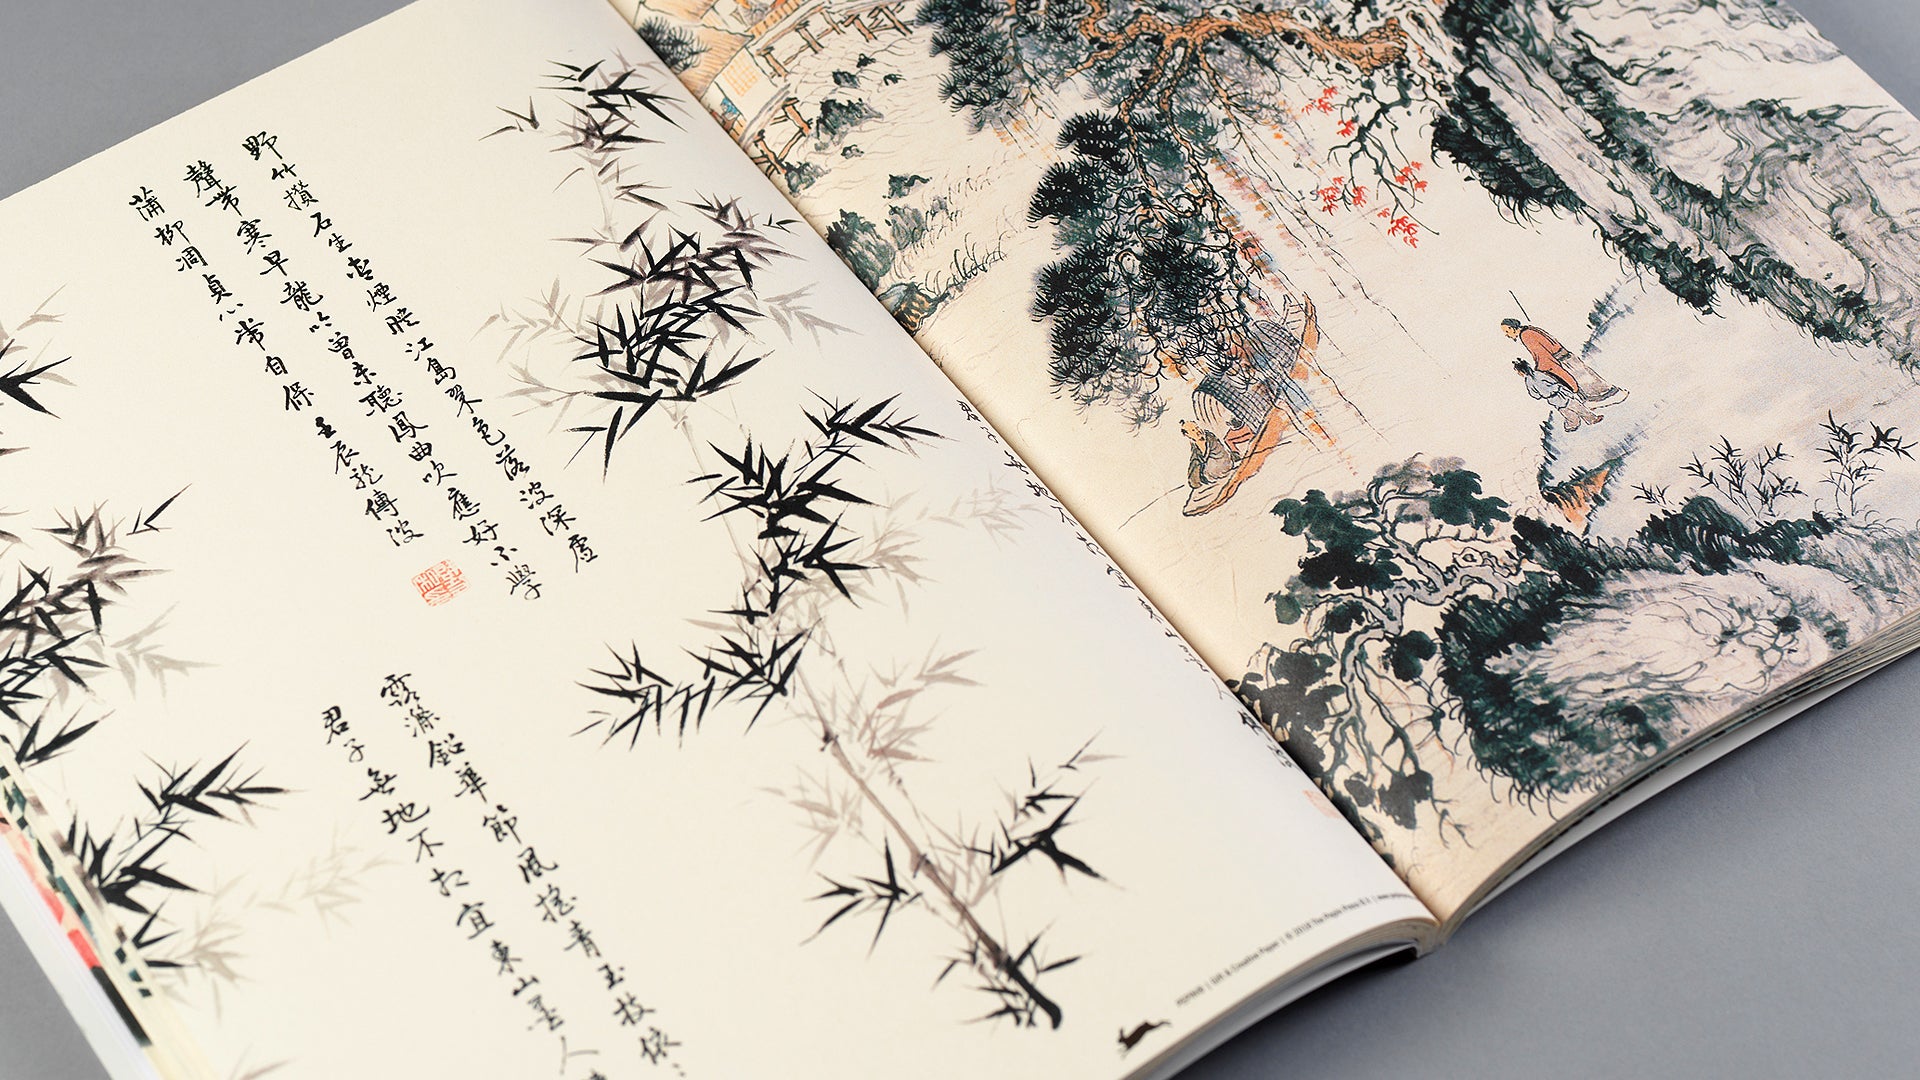 野竹攢石生含煙映江島翠色落波深虛
聲帶寒早龍吟曾未聽鳳曲吹應好不學
蒲柳凋貞心常自保 壬辰龍傳波
露滌鉛華節風搖青玉枝依〻
君子無地不相宜東山墨人
PEPIN® | Gift & Creative Paper | © 2018 The Pepin Press B.V. | www.